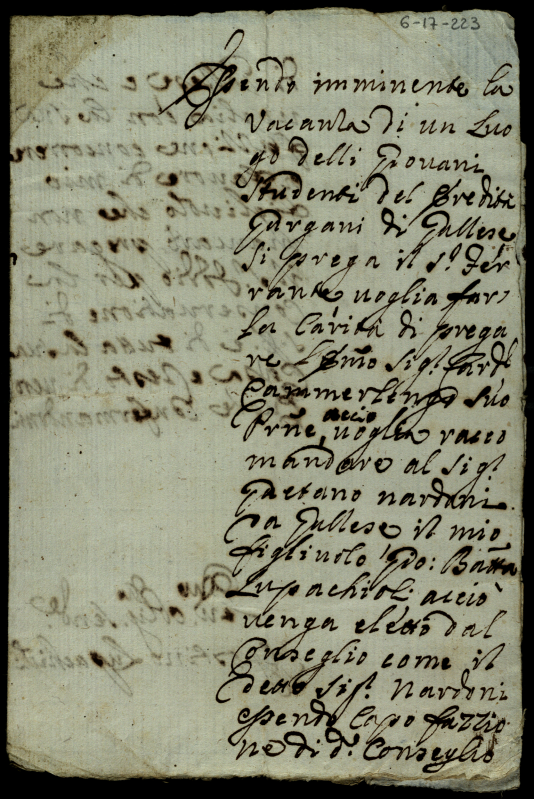 6-17-223
Essendo imminente la
vacanza di un Luo
go delli Giovani
studenti del Eredità
Gargani di Gallese
si prega il s.r Fer
rante voglia far
la Carità di prega
re l'Emo sig.r Card.l
Cammerlengo suo
Prñe acciò voglia racco
mandare al sig.r
Gaetano nardoni
da Gallese il mio
figliuolo Gio: Batta
Lupachioli acciò
venga eletto dal
Conseglio come il
detto sig.r Nardoni
essendo Capo fazzio
ne di d.o Conseglio